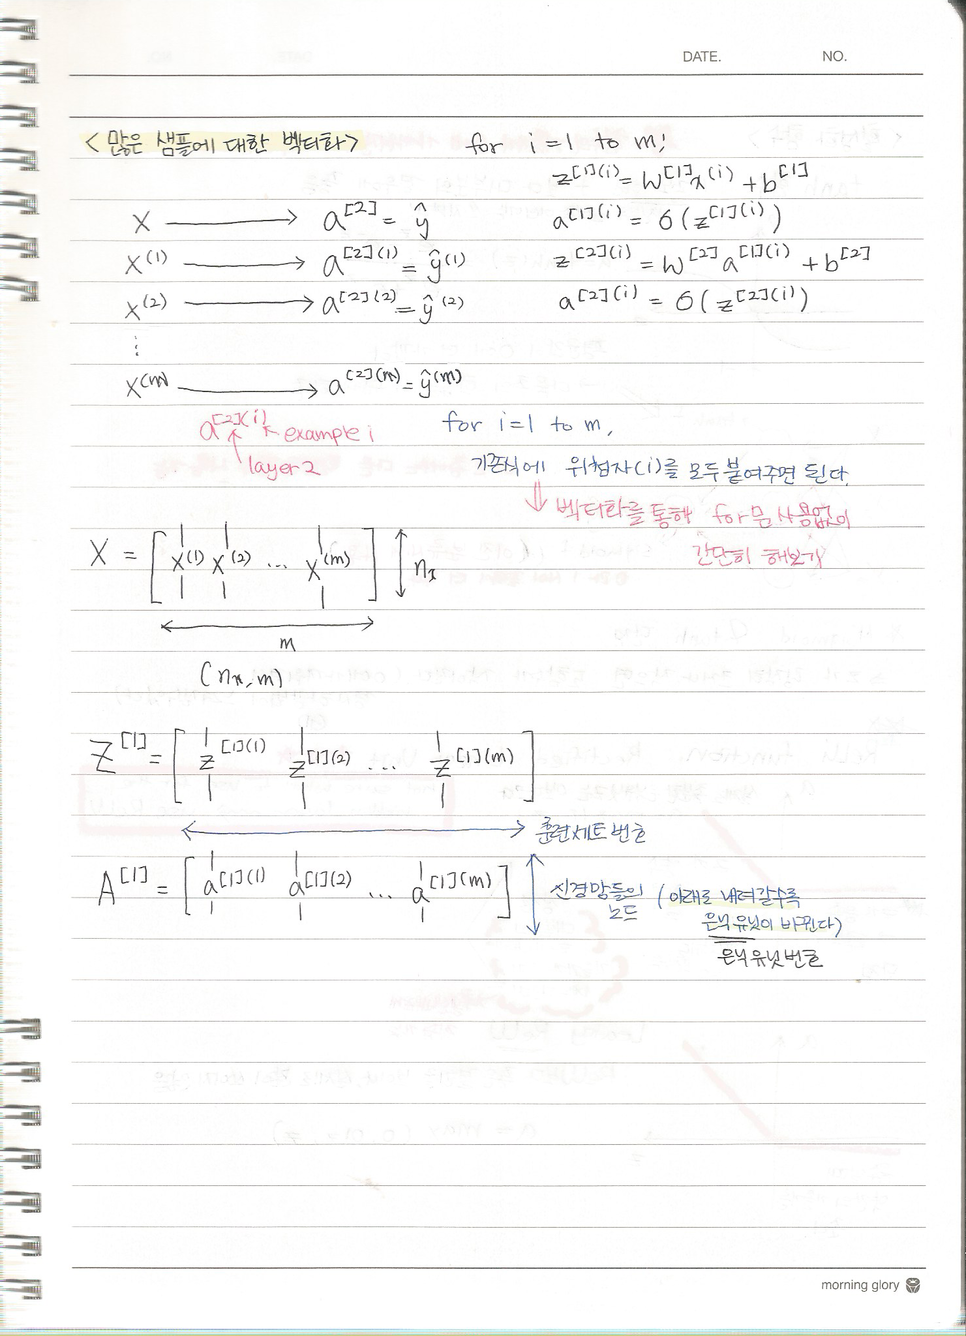 DATE. NO.
<많은 샘플에 대한 벡터화>
X ⟶ a^[2] = ŷ
X^(1) ⟶ a^[2](1) = ŷ^(1)
X^(2) ⟶ a^[2](2) = ŷ^(2)
⋮
X^(m) ⟶ a^[2](m) = ŷ^(m)
a^[2](i) ↖ example i
layer 2
for i=1 to m:
z^[1](i) = W^[1]x^(i) + b^[1]
a^[1](i) = σ(z^[1](i))
z^[2](i) = W^[2]a^[1](i) + b^[2]
a^[2](i) = σ(z^[2](i))
for i=1 to m,
기존식에 위첨자(i)를 모두 붙여주면 된다.
⇓ 벡터화를 통해 for문 사용없이
간단히 해보기
X = [x^(1) x^(2) ... x^(m)] ↕ n_x
m
(n_x, m)
Z^[1] = [z^[1](1) z^[1](2) ... z^[1](m)]
⟷ 훈련세트 번호
A^[1] = [a^[1](1) a^[1](2) ... a^[1](m)] ↕ 신경망들의 노드
(아래로 내려갈수록
은닉유닛이 바뀐다)
은닉유닛번호
morning glory